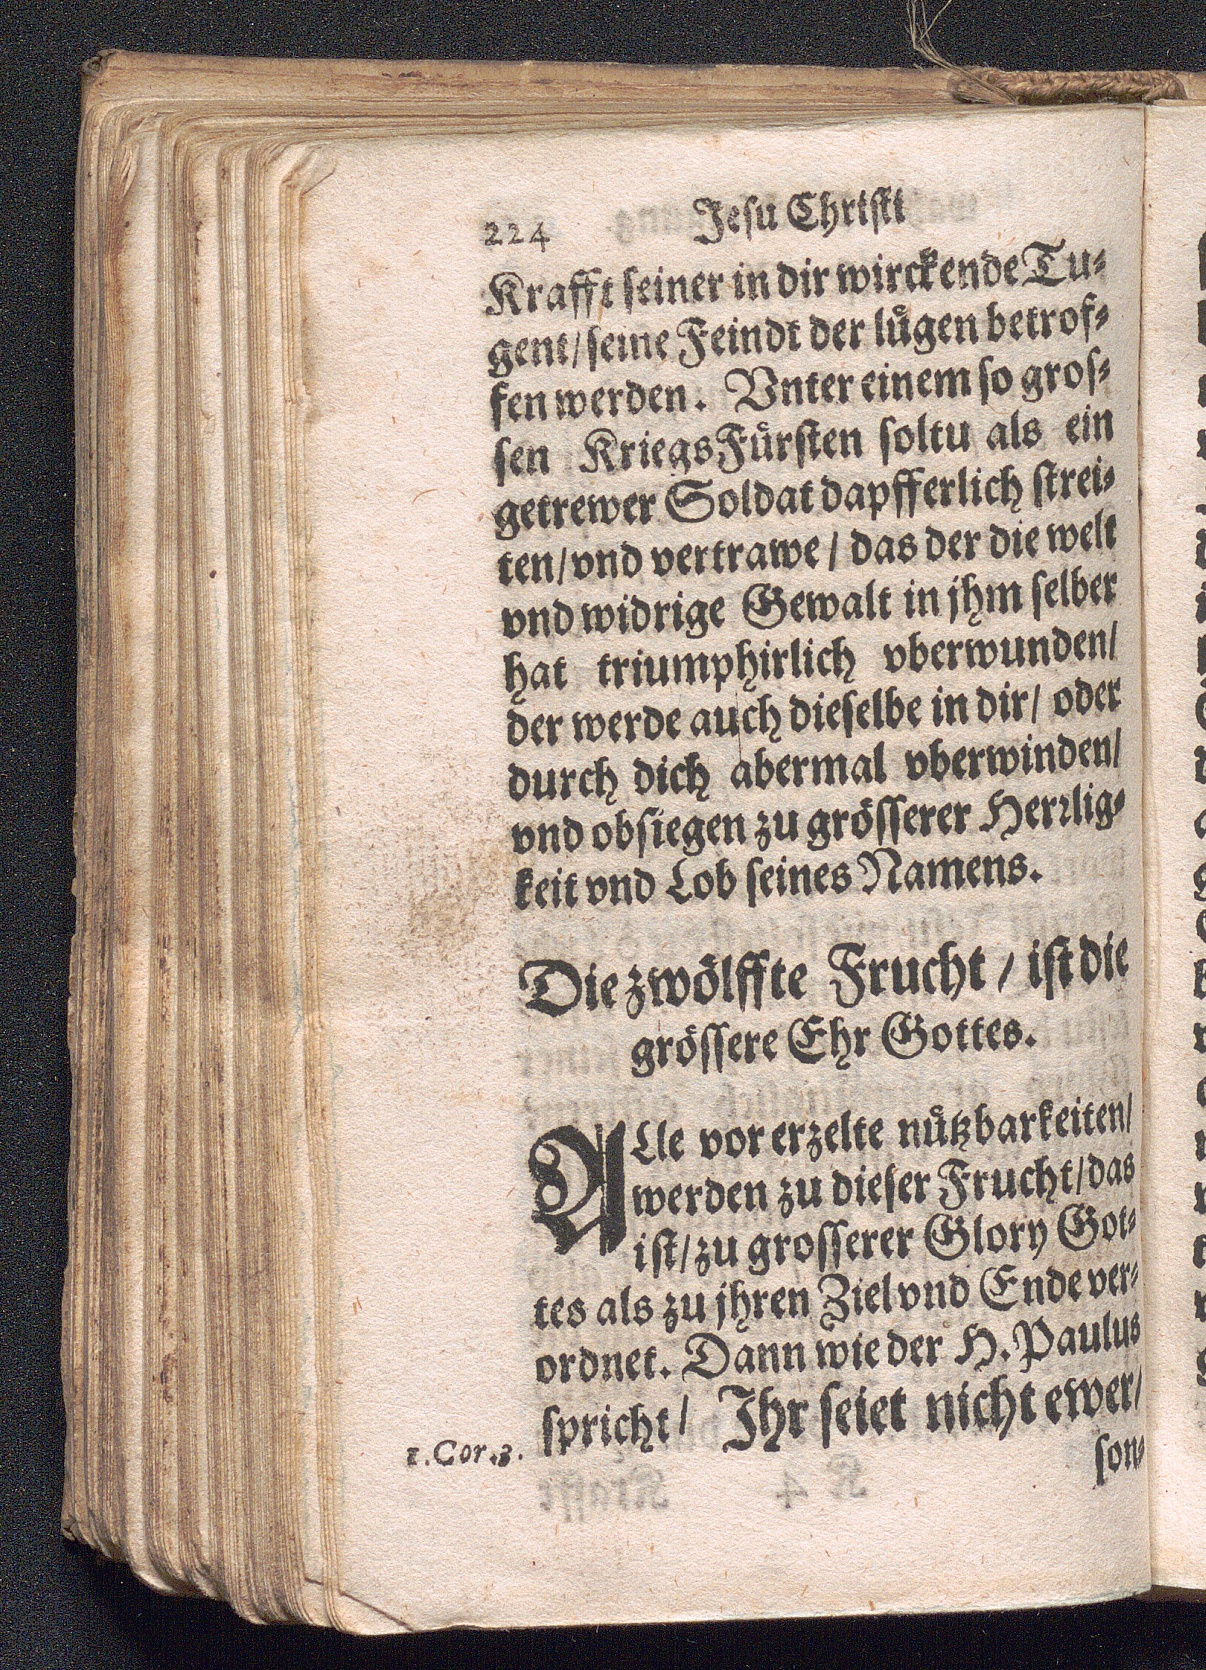 224 Jesu Christi
Krafft seiner in dir wirckende Tu⸗
gent/ seine Feindt der luͤgen betrof⸗
fen werden. Vnter einem so gros⸗
sen KriegsFuͤrsten soltu als ein
getrewer Soldat dapfferlich strei⸗
ten/ vnd vertrawe / das der die welt
vnd widrige Gewalt in jhm selber
hat triumphirlich vberwunden/
der werde auch dieselbe in dir/ oder
durch dich abermal vberwinden/
vnd obsiegen zu grösserer Herꝛlig⸗
keit vnd Lob seines Namens.
Die zwölffte Frucht / ist die
grössere Ehr Gottes.
ALle vor erzelte nuͤtzbarkeiten/
werden zu dieser Frucht/ das
ist/ zu grosserer Glory Got⸗
tes als zu jhren Ziel vnd Ende ver⸗
ordnet. Dann wie der H. Paulus
spricht/ Jhr seiet nicht ewer/
1. Cor. 3.
son⸗